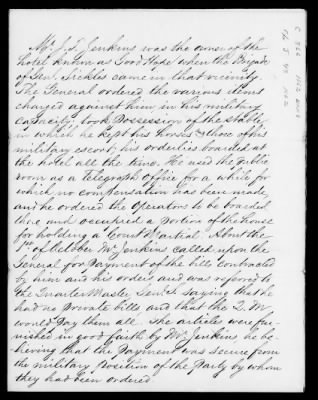 Mr. J. T. Jenkins was the owner of the
hotel known as Good Hope when the Brigade
of Genl. Sickles came in that vicinity.
The General ordered the various items
charged against them in his military
capacity, took Possession of the Stable,
in which he kept his horses & those of his
military escort, his orderlies boarded at
the hotel all the time. He used the public
room as a Telegraph Office for a while for
which no compensation has been made,
and he ordered the Operators to be boarded
there, and occupied a portion of the house
for holding a Court Martial. About the
1st of October Mr. Jenkins called upon the
General for Payment of the bills contracted
by him and his order and was refered to
the Quarter Master, Genl. S. saying that he
had no private bills and that the Q. M
would Pay them all. The articles were fur-
nished in good faith by Mr. Jenkins he be-
lieving that the Payment was secure from
the military position of the Party by whom
they had been ordered.